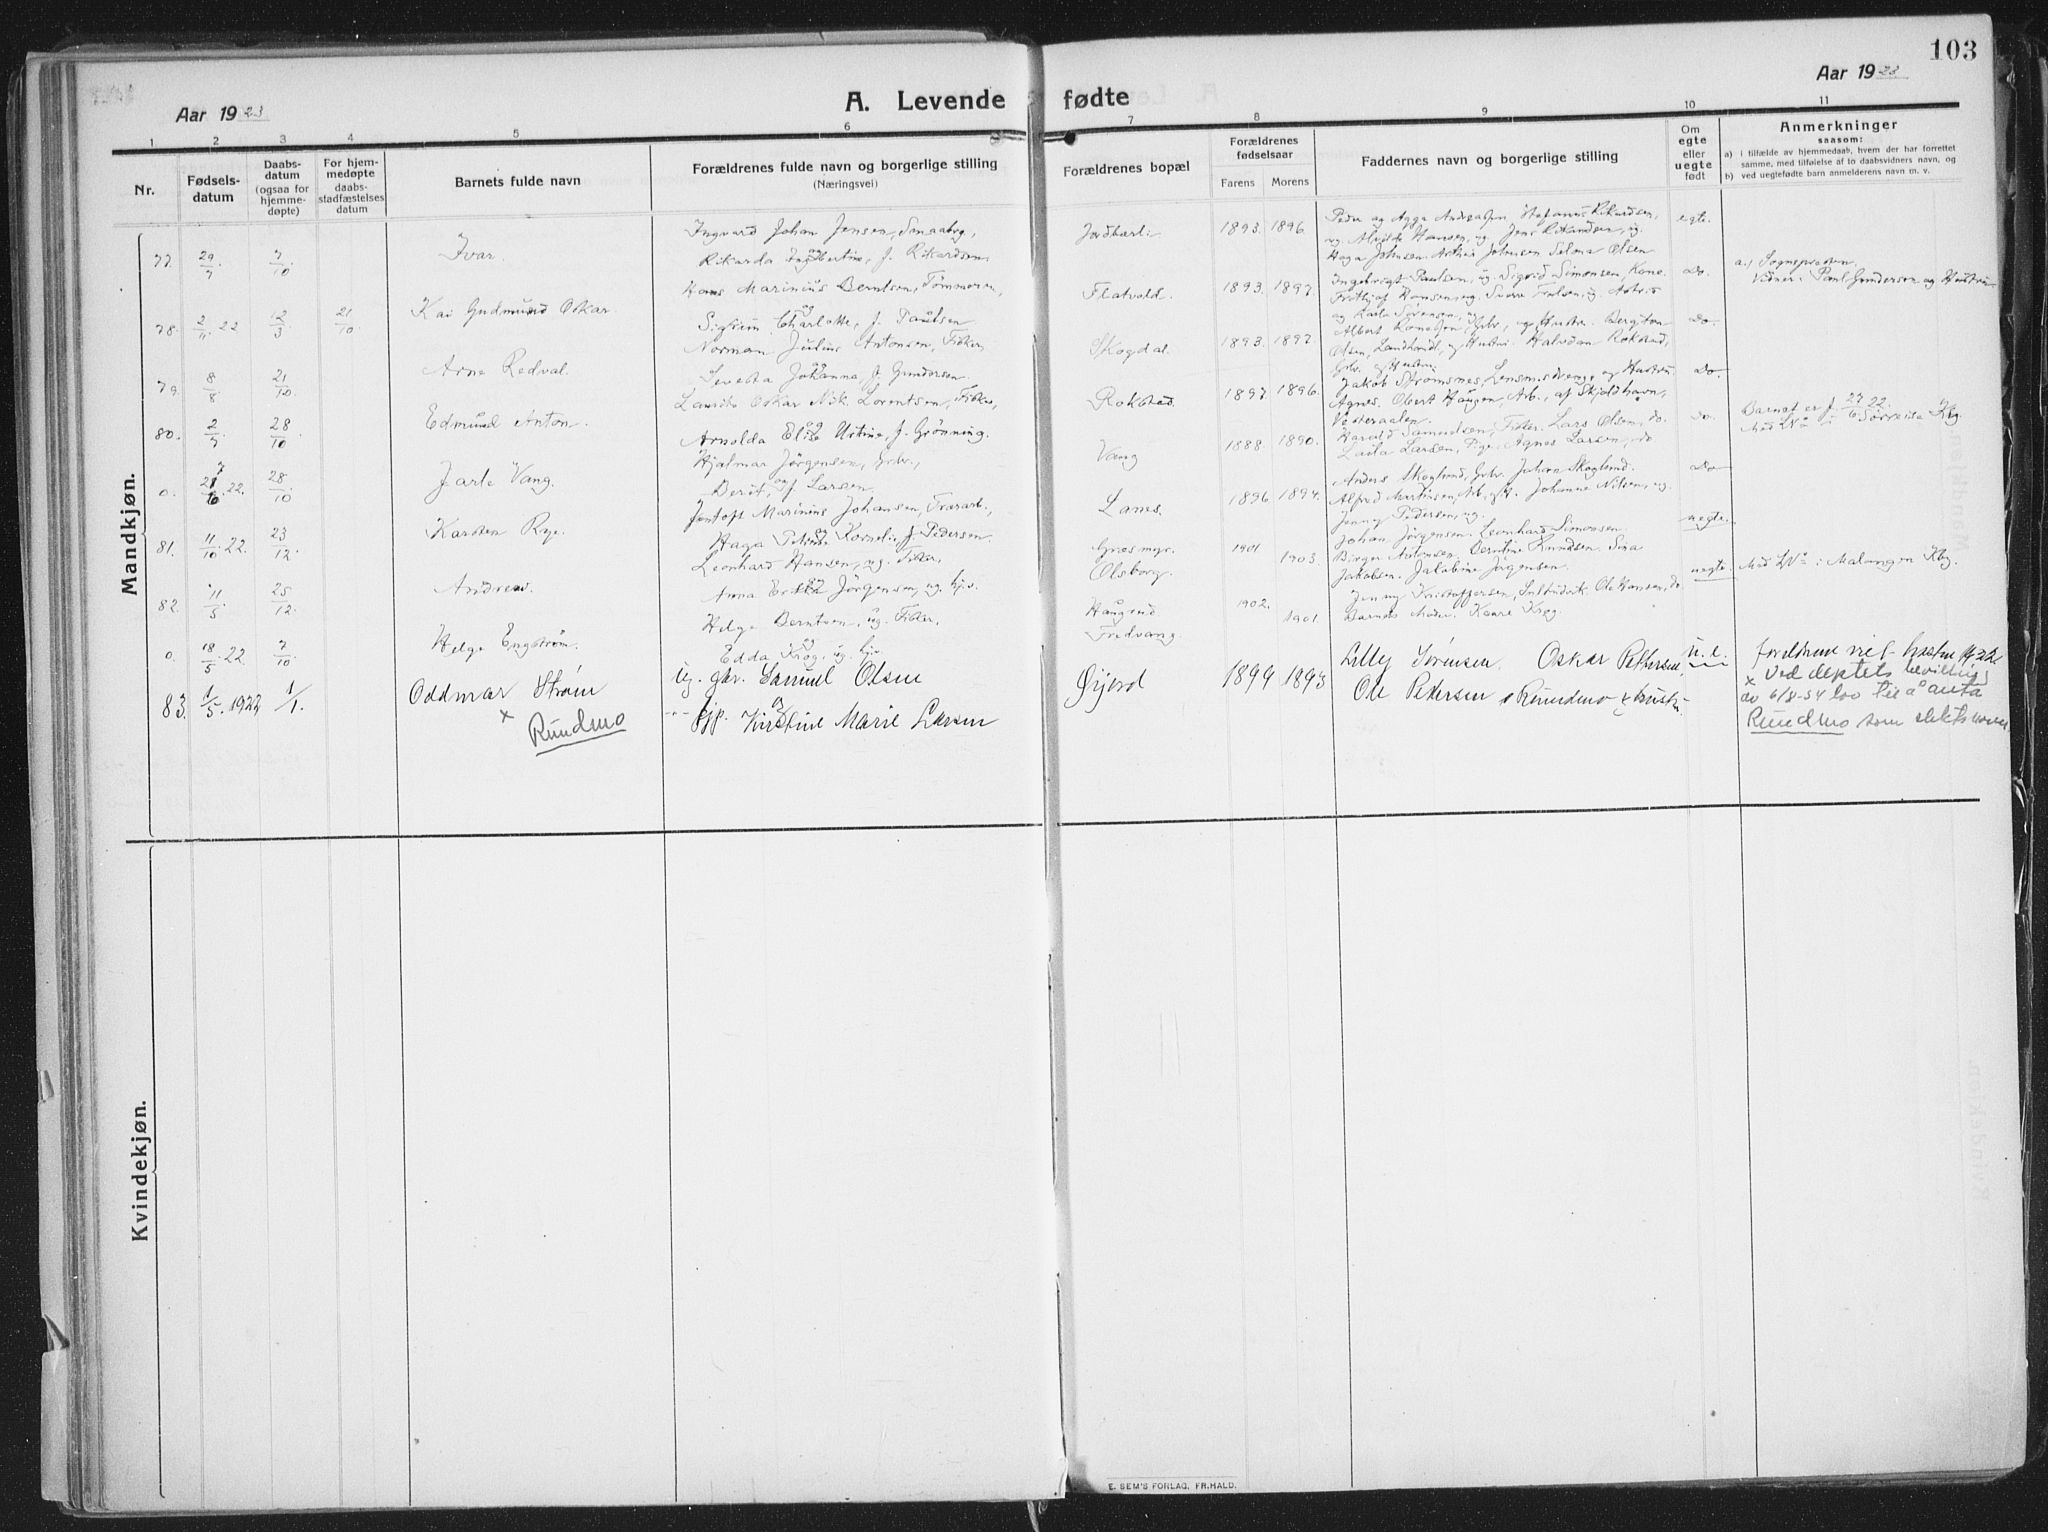 103
Aar 1923
A. Levende fødte
Aar 1923
1 2 3 4 5 6 7 8 9 10 11
Nr.
Fødsels-
datum
Daabs-
datum
(ogsaa for
hjemme-
døpte)
For hjem-
medøpte
daabs-
stadfæstelses
datum
Barnets fulde navn
Forældrenes fulde navn og borgerlige stilling
(Næringsvei)
Forældrenes bopæl
Forældrenes
fødselsaar
Farens Morens
Faddernes navn og borgerlige stilling
Om
egte
eller
uegte
født
Anmerkninger
saasom:
a) i tilfælde av hjemmedaab, hvem der har forrettet
samme, med tilføielse af to daabsvidners navn, og
b) ved uegtefødte barn anmelderens navn m. v.
Mandkjøn.
77. 29/7 7/10. Ivar.
Ingvard Johan Jensen, Smaabrg,
og
Rikarda Ingbertine, f. Rikardsen.
Jordbærli 1893. 1896.
Peder og Agga Andreassen, Stefanus Rikardsen,
ug. Alvilde Hansen, ug. Jens Rikardsen, ug.
Haga Johnsen. Arthur Johnsen Selma Olsen
egte.
78. 2/11 22 12/3 21/10. Kai Gudmund Oskar.
Hans Marinius Berntsen, Tømmerm,
og
Sigrun Charlotte, f. Paulsen
Flatvold. 1893. 1897.
Ingebrigt Paulsen, ug. Sigrid Simonsen, Kone.
Frithjof Hansen, ug.
og Karla Sørensen, ug
Do.
a.) Sognepresten.
Vidner: Paul Gundersen og Hustru
79. 8/8 21/10. Arne Redval.
Norman Julius Antonsen, Fisker,
og
Sevesta Johanna f. Gundersen.
Skogdal. 1893. 1897.
Olsen, Landhandl, og Hustru. Halvdan Rokstad,
Grbr. og Hustru.
Do.
80. 2/7 28/10. Edmund Anton.
Laurits Oskar Nik. Lorentsen, Fisker,
og
Arnolda Elise Ustine f. Grønning.
Rokstad. 1897 1896.
Jakob Strømsnes, Lensmsdreng, og Hustru
Agnes. Obert Haugen, Arb., af Skjoldhavn,
Vesteraalen.
Do.
0. 27/6. 22. 28/10 Jarle Vang.
Hjalmar Jørgensen, Grbr.,
og
Berit, f. Larsen
Vang 1888 1890.
Harald Samuelsen, Fisker. Lars Olsen, do.
Laila Larsen, Pige. Agnes Larsen, do
do.
Barnet er f. 27/6 22.
Med No i Sørreisa Kbg.
81. 11/10. 22. 23/12. Karsten Rye.
Jentoft Marinius Johansen, Frærarb.,
og
Haga Petrine Kornelie, f. Pedersen.
Lanes. 1896 1894.
Anders Skoglund, Grbr. Johan Skoglund.
Alfred Martinsen, Arb., og H. Johanne Nilsen, ug.
Jenny Pedersen, ug.
Do
82. 11/5 25/12. Andreas.
Leonhard Hansen, ug. Fisker,
og
Anna Erikka Jørgensen, ug. hjv.
Græsmyr. Olsborg. 1901 1903.
Johan Jørgensen. Leonhard Simonsen.
Birger Antonsen. Berntine Knudsen. Sina
Jakobsen. Jakobine Jørgensen.
uegte.
0. 18/5. 22. 7/10. Helge Engstrøm.
Helge Berntsen, ug. Fisker,
og
Edda Krog, ug. hjv.
Haugund Fredvang. 1902. 1901
Jenny Kristoffersen, Ole Hansen, do.
Barnets Moder. Kaare Krog.
uegte.
Med No i Malangen Kbg.
83. 1/5. 1922 1/1. Oddmar Strøm
x
Rundmo
ug. gbr. Samuel Olsen
og
-"- hjp. Kirstine Marie Larsen
Øyjord 1899 1893
Lilly Sørensen. Oskar Pettersen
Ole Pedersen Rundmo & hustru.
u.e.
foreldrene viet høsten 1922
x Ved deptets bevilling
av 6/8-54 lov til å anta
Rundmo som slektsnavn
Kvindekjøn.
E. SEM'S FORLAG, FR.HALD.